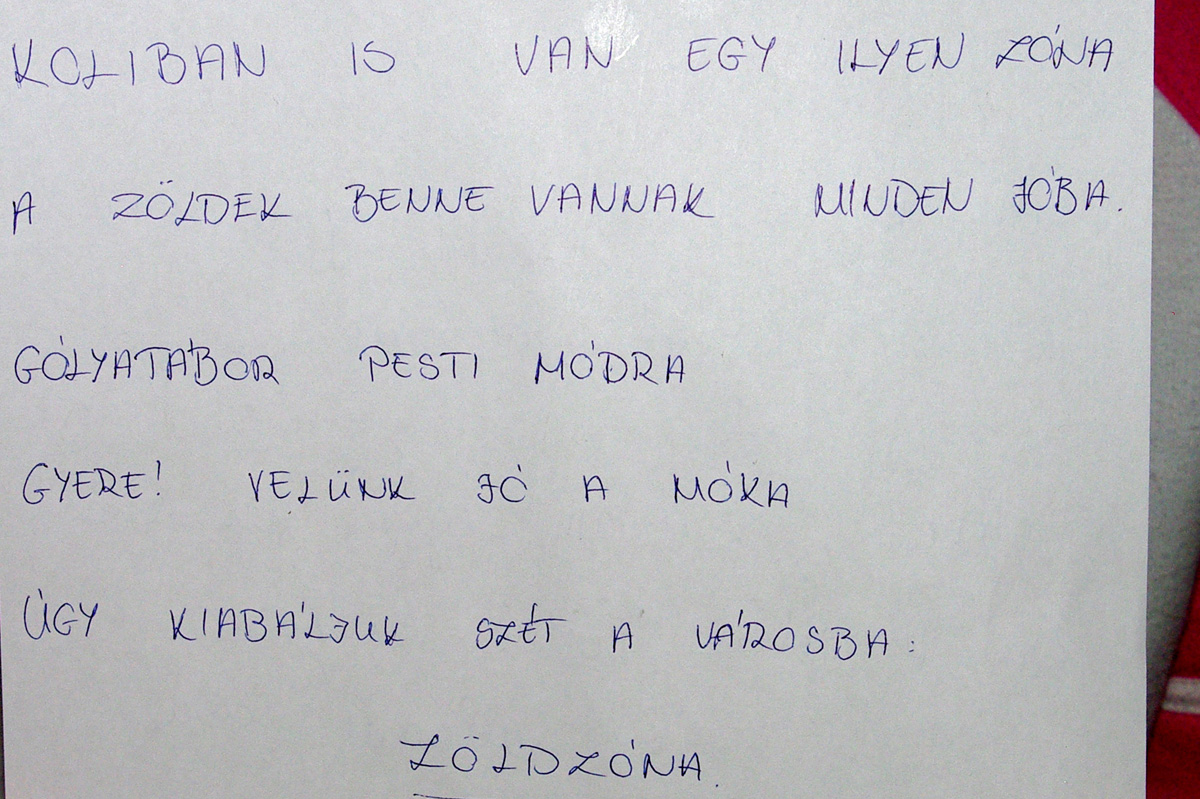 KOLIBAN IS VAN EGY ILYEN ZÓNA
A ZÖLDEK BENNE VANNAK MINDEN JÓBA.
GÓLYATÁBOR PESTI MÓDRA
GYERE! VELÜNK JÓ A MÓKA
ÚGY KIABÁLJUK SZÉT A VÁROSBA:
ZÖLDZÓNA.